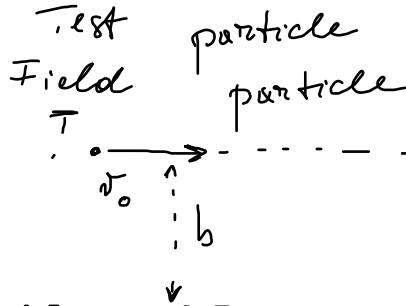 Test particle
Field particle
T
v₀
b